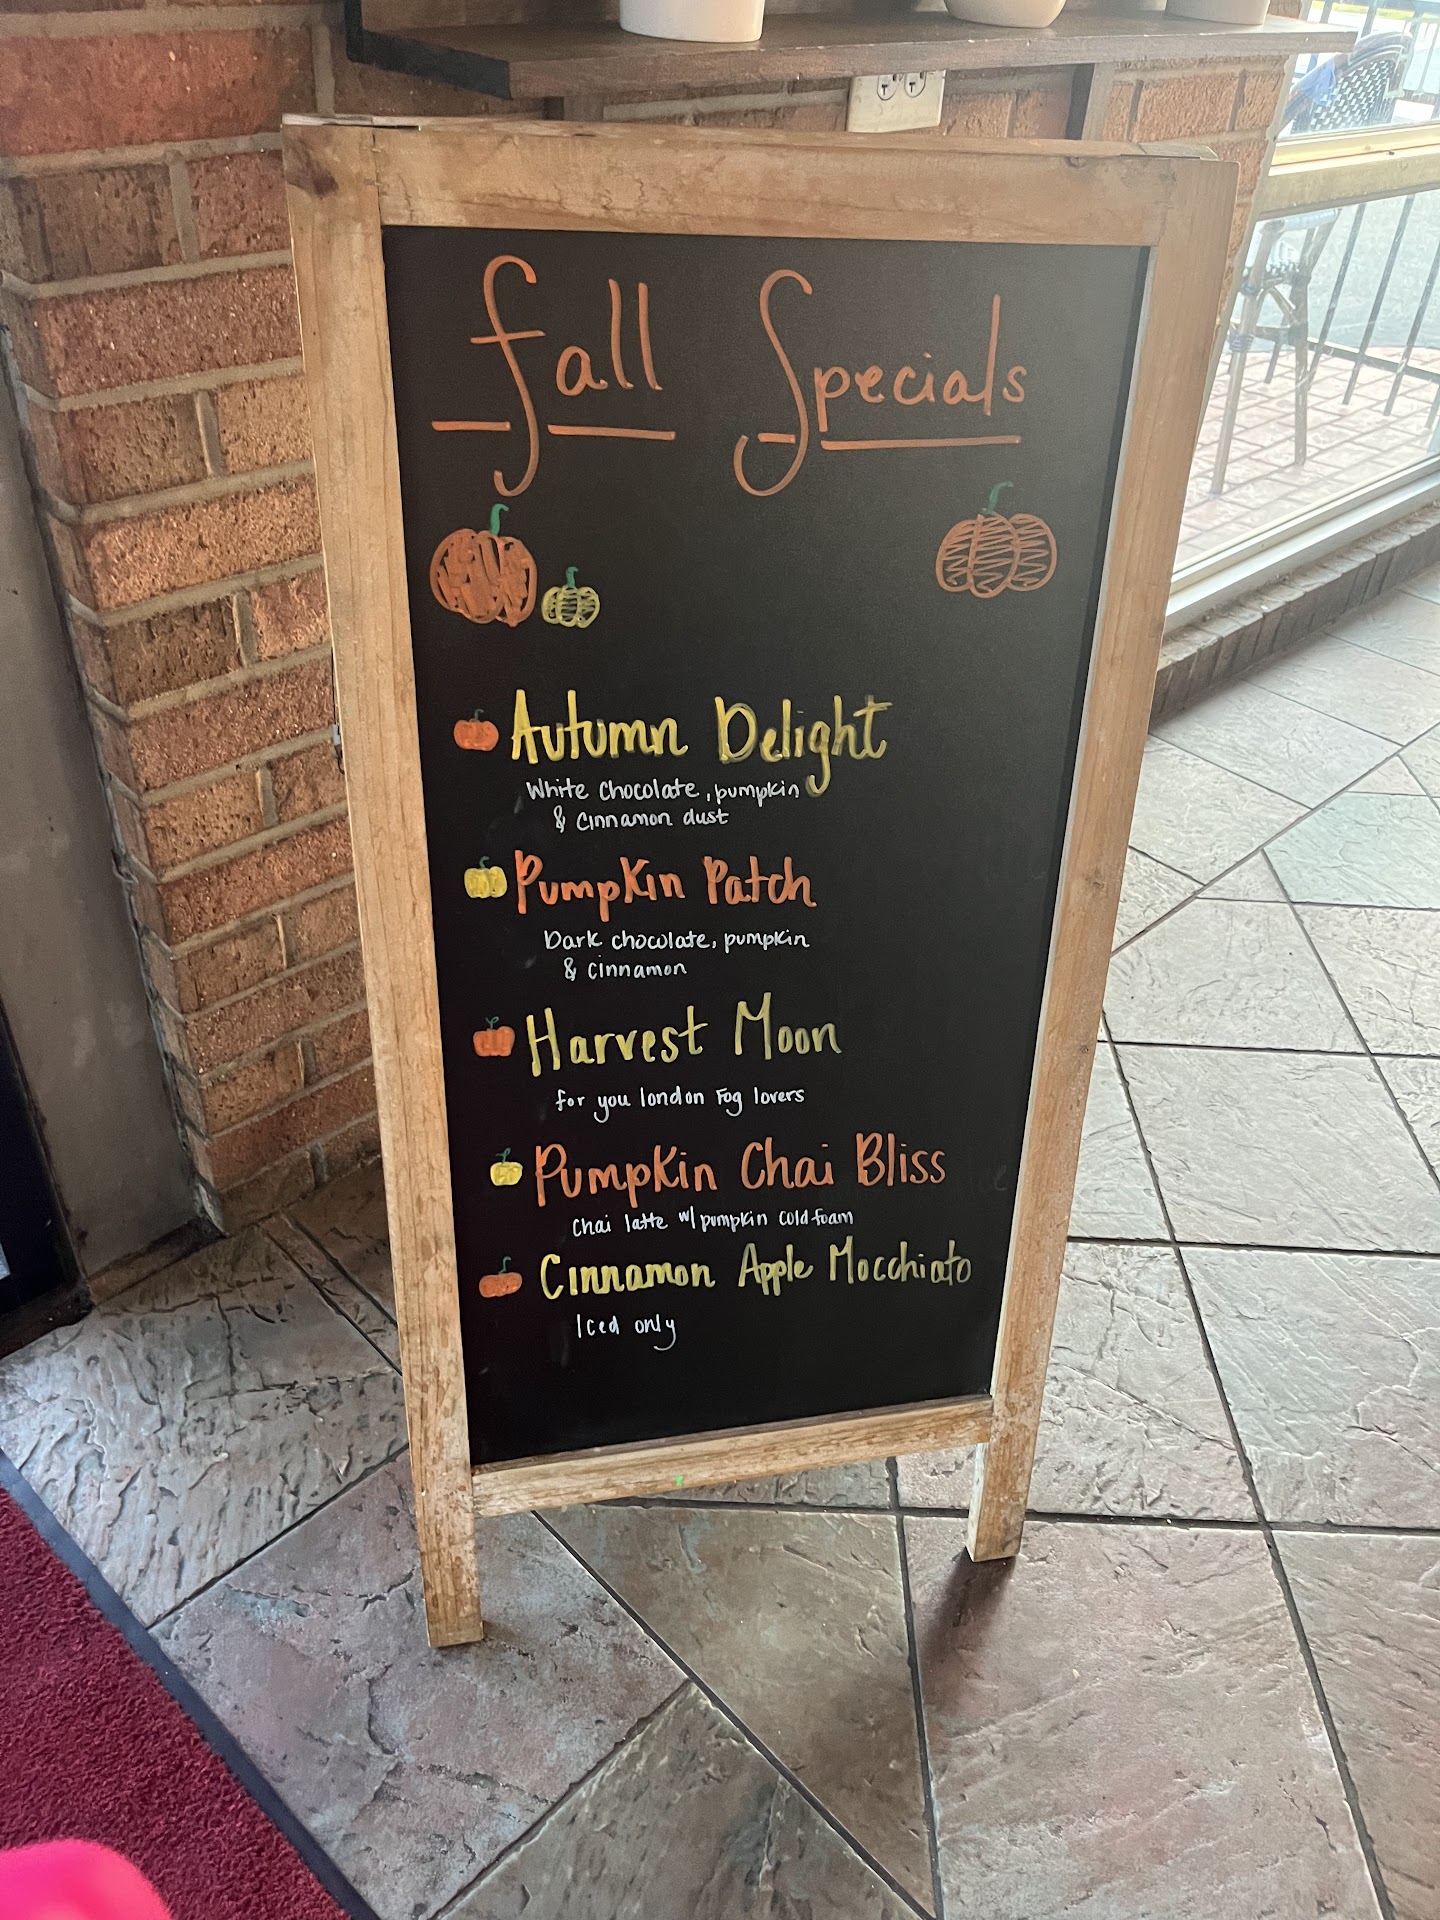 Fall Specials
Autumn Delight
White chocolate, pumpkin
& cinnamon dust
Pumpkin Patch
Dark chocolate, pumpkin
& cinnamon
Harvest Moon
for you london Fog lovers
Pumpkin Chai Bliss
Chai latte w/ pumpkin cold foam
Cinnamon Apple Mocchiato
Iced only